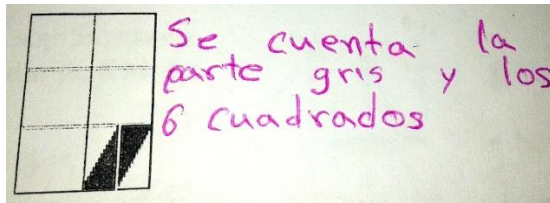 Se cuenta la
parte gris y los
6 cuadrados